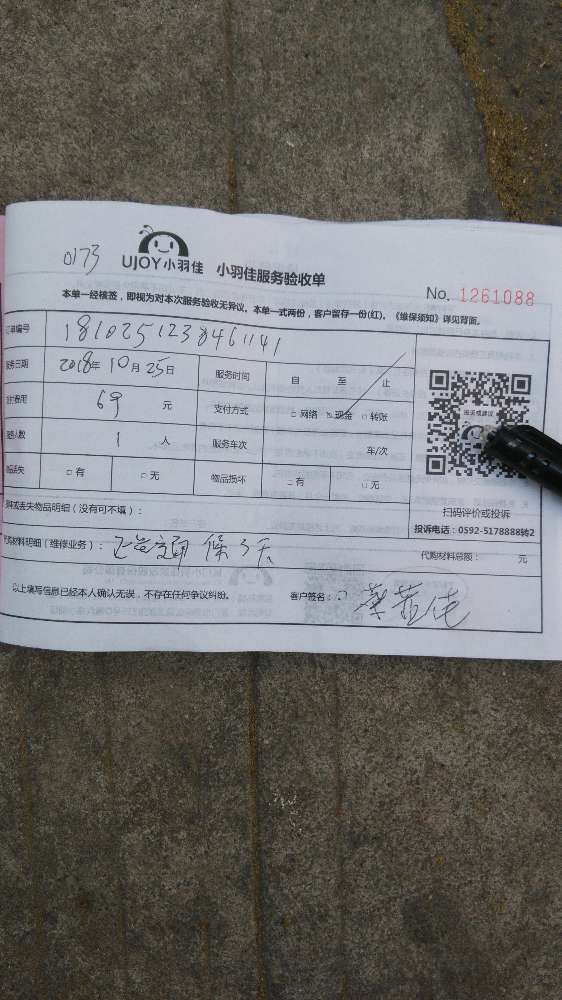 0173 UJOY小羽佳 小羽佳服务验收单
No. 1261088
本单一经核签，即视为对本次服务验收无异议。本单一式两份，客户留存一份(红)。《维保须知》详见背面。
订单编号 1810251238461141
服务日期 2018年10月25日 服务时间 自 至 止
费用 69 元 支付方式 □网络 □现金 □转账
人数 1 人 服务车次 车/次
丢失 □有 □无 物品损坏 □有 □无
扫码评价或投诉
投诉电话：0592-5178888转2
坏或丢失物品明细（没有可不填）：
代购材料明细（维修业务）： 已疏通 保3天 代购材料总额： 元
以上填写信息已经本人确认无误，不存在任何争议纠纷。 客户签名：